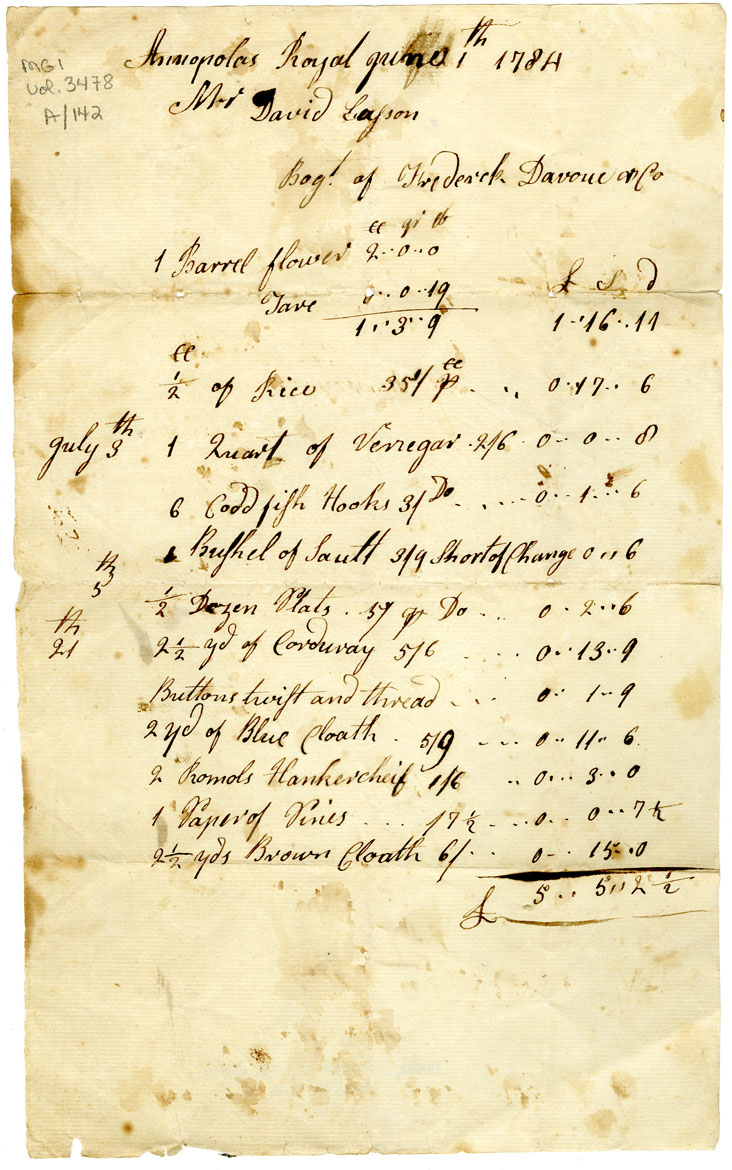 MG1
Vol. 3478
A/142
Annopolas Royal June 1th 1784
Mr David Lasson
Bogt of Frederck Davoue & Co
cc qr lb
1 Barrel flower 2..0..0
Tare 0..0..19 £ S d
1..3..9 1..16..11
½ cc of Rice 35/ p cc .. 0..17..6
July 3th 1 Quart of Verregar 2/6 0..0..8
6 Codd fish Hooks 3/ Do ... 0..1..6
1 Bushel of Sault 3/9 Short of Change 0..6
5th ½ Dozen Plats . 5/ p Do .. 0..2..6
21th 2½ yd of Corduray 5/6 .. 0..13..9
Buttons twist and thread ... 0..1..9
2 yd of Blue Cloath . 5/9 ... 0..11..6
2 Romols Hankercheif 1/6 .. 0...3..0
1 Paper of Pines ... 17½ ... 0..0..7½
2½ yds Brown Cloath 6/ .. 0..15..0
£ 5..5..2½